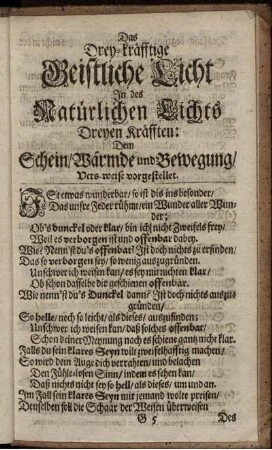 Das
Drey-kräfftige
Geistliche Licht
In des
Natürlichen Lichts
Dreyen Kräfften:
Dem
Schein/ Wärmde und Bewegung/
Vers-weise vorgestellet.
Ist etwas wunderbar/ so ist dis ins besonder/
Das unsre Feder rühmt/ ein Wunder aller Wun-
der;
Ob's dunckel oder klar/ bin ich nicht Zweifels frey/
Weil es verborgen ist und offenbar dabey.
Wie? Nenn'st du's offenbar? Ist doch nichts zu erfinden/
Das so verborgen sey/ so wenig auszugründen.
Unschwer ich weisen kan/ es sey mit nichten klar/
Ob schon dasselbe dir geschienen offenbar.
Wie nenn'st du's Dunckel dann? Ist doch nichts auszu-
gründen/
So helle/ noch so leicht/ als dieses/ auszufinden:
Unschwer ich weisen kan/ daß solches offenbar/
Schon deiner Meynung nach es schiene gantz nicht klar.
Falls du sein klares Seyn wilt zweifelhafftig machen/
So wird dein Auge dich verrahten/ und belachen
Den Fühle-losen Sinn/ indem es sehen kan/
Daß nichts nicht sey so hell/ als dieses/ um und an.
Im Fall sein klares Seyn mit jemand wolte preisen/
Denselben soll die Schaar der Weisen überweisen
G 5
Des